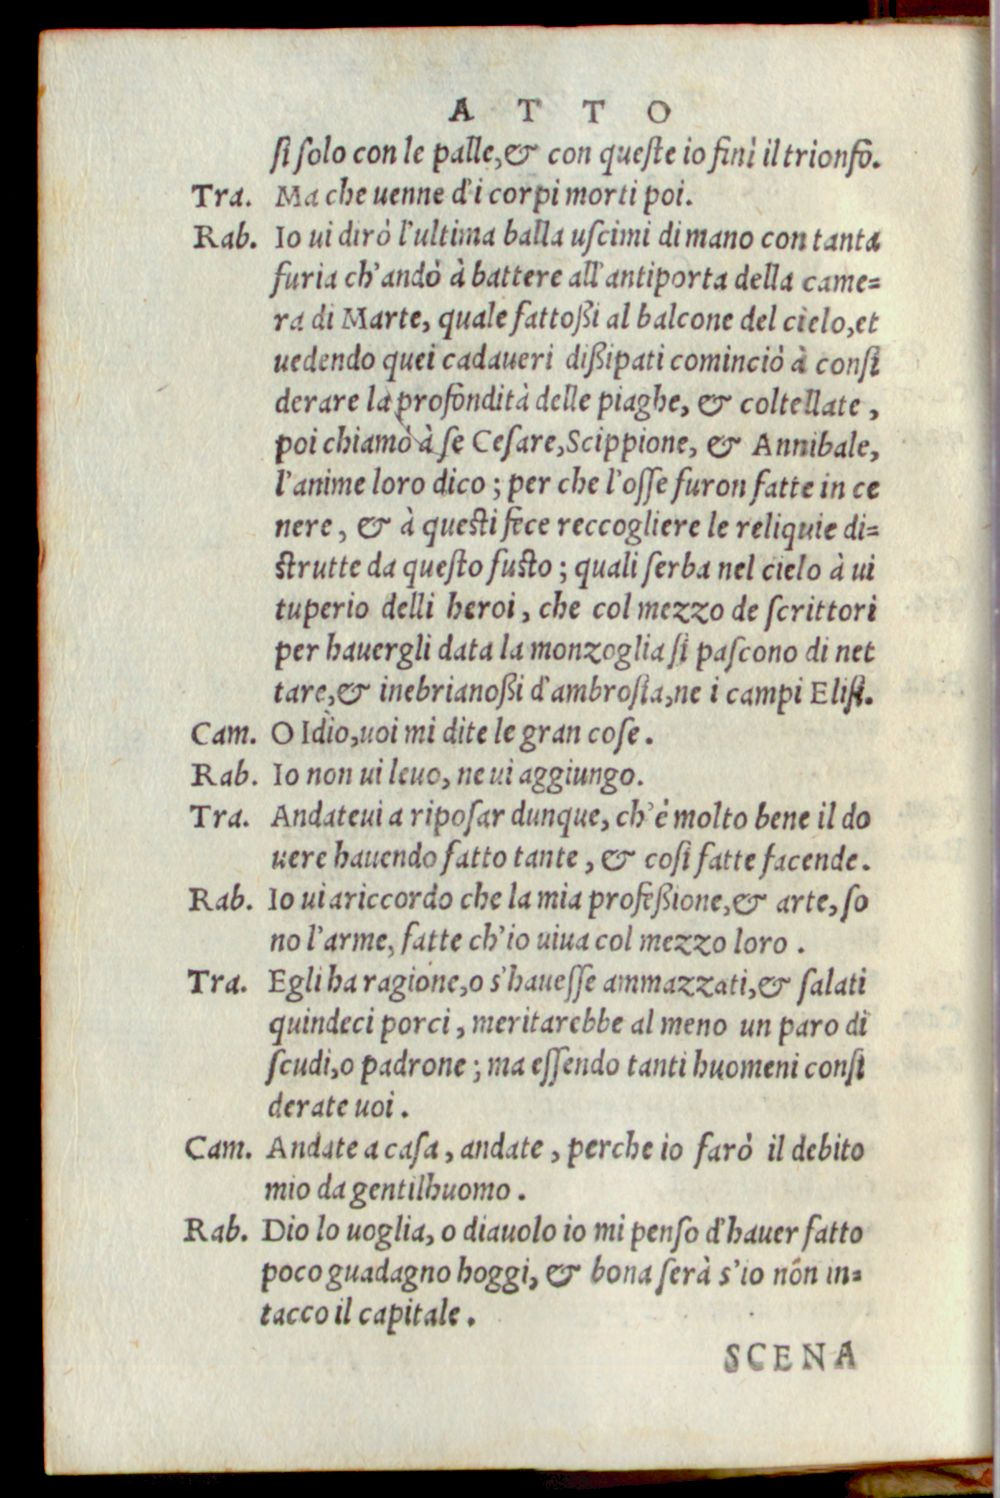 ATTO
ſi ſolo con le palle, & con queſte io finì il trionfo.
Tra. Ma che uenne d'i corpi morti poi.
Rab. Io ui dirò l'ultima balla uſcimi di mano con tanta
furia ch'andò à battere all'antiporta della came=
ra di Marte, quale fattoßi al balcone del cielo, et
uedendo quei cadaueri dißipati cominciò à conſi
derare la profondità delle piaghe, & coltellate,
poi chiamò à ſe Ceſare, Scippione, & Annibale,
l'anime loro dico; per che l'oſſe furon fatte in ce
nere, & à queſti fece reccogliere le reliquie di=
ſtrutte da queſto fuſto; quali ſerba nel cielo à ui
tuperio delli heroi, che col mezzo de ſcrittori
per hauergli data la monzoglia ſi paſcono di net
tare, & inebrianoßi d'ambroſia, ne i campi Eliſi.
Cam. O Idio, uoi mi dite le gran coſe.
Rab. Io non ui leuo, ne ui aggiungo.
Tra. Andateui a ripoſar dunque, ch'è molto bene il do
uere hauendo fatto tante, & coſi fatte facende.
Rab. Io ui ariccordo che la mia profeßione, & arte, ſo
no l'arme, fatte ch'io uiua col mezzo loro.
Tra. Egli ha ragione, o s'haueſſe ammazzati, & ſalati
quindeci porci, meritarebbe al meno un paro di
ſcudi, o padrone; ma eſſendo tanti huomeni conſi
derate uoi.
Cam. Andate a caſa, andate, perche io farò il debito
mio da gentilhuomo.
Rab. Dio lo uoglia, o diauolo io mi penſo d'hauer fatto
poco guadagno hoggi, & bona ſerà s'io nõn in=
tacco il capitale.
SCENA